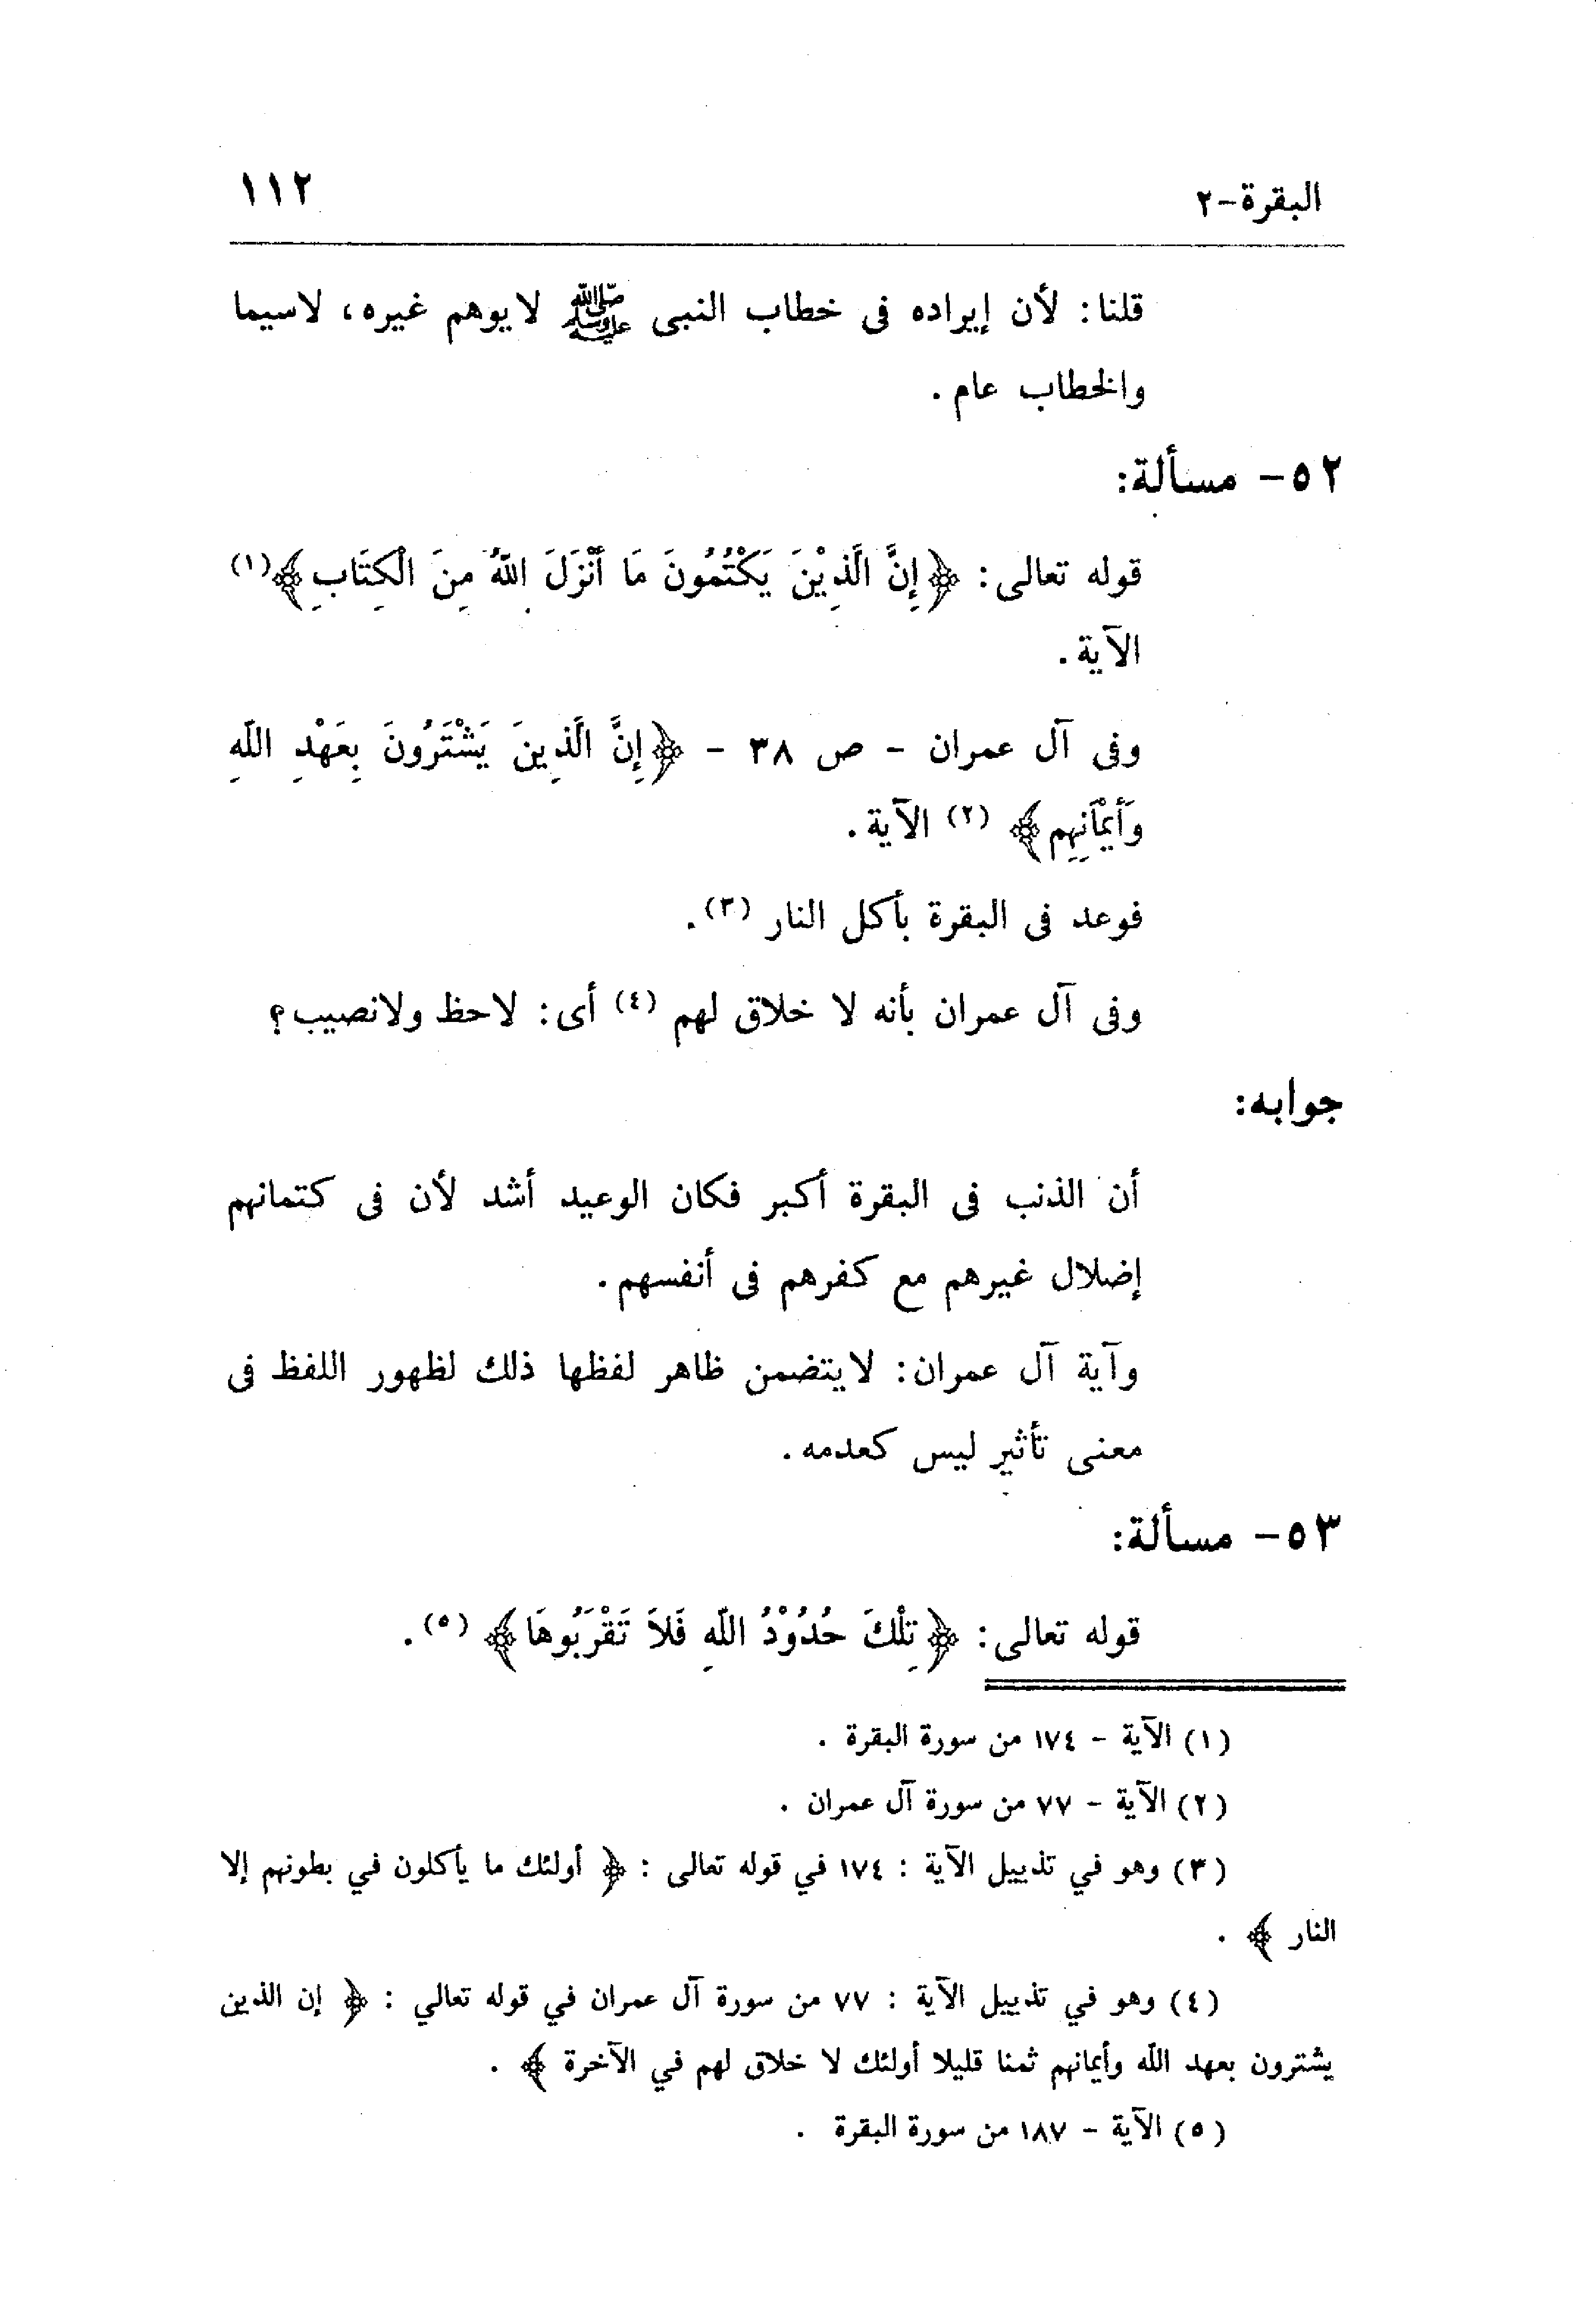 البقرة-٢ ١١٢
قلنا: لأن إيراده فى خطاب النبى ﷺ لايوهم غيره، لاسيما
والخطاب عام.
٥٢- مسألة:
قوله تعالى: ﴿إِنَّ الَّذِيْنَ يَكْتُمُونَ مَا أَنْزَلَ اللهُ مِنَ الْكِتَابِ﴾(١)
الآية.
وفى آل عمران - ص ٣٨ - ﴿إِنَّ الَّذِينَ يَشْتَرُونَ بِعَهْدِ اللهِ
وَأَيْمَانِهِم﴾ (٢) الآية.
فوعد فى البقرة بأكل النار (٣).
وفى آل عمران بأنه لا خلاق لهم (٤) أى: لاحظ ولانصيب؟
جوابه:
أن الذنب فى البقرة أكبر فكان الوعيد أشد لأن فى كتمانهم
إضلال غيرهم مع كفرهم فى أنفسهم.
وآية آل عمران: لايتضمن ظاهر لفظها ذلك لظهور اللفظ فى
معنى تأثير ليس كعدمه.
٥٣- مسألة:
قوله تعالى: ﴿تِلْكَ حُدُوْدُ اللهِ فَلاَ تَقْرَبُوهَا﴾ (٥).
(١) الآية - ١٧٤ من سورة البقرة .
(٢) الآية - ٧٧ من سورة آل عمران .
(٣) وهو في تذييل الآية : ١٧٤ في قوله تعالى : ﴿ أولئك ما يأكلون في بطونهم إلا
النار ﴾ .
(٤) وهو في تذييل الآية : ٧٧ من سورة آل عمران في قوله تعالي : ﴿ إن الذين
يشترون بعهد الله وأيمانهم ثمنا قليلا أولئك لا خلاق لهم في الآخرة ﴾ .
(٥) الآية - ١٨٧ من سورة البقرة .